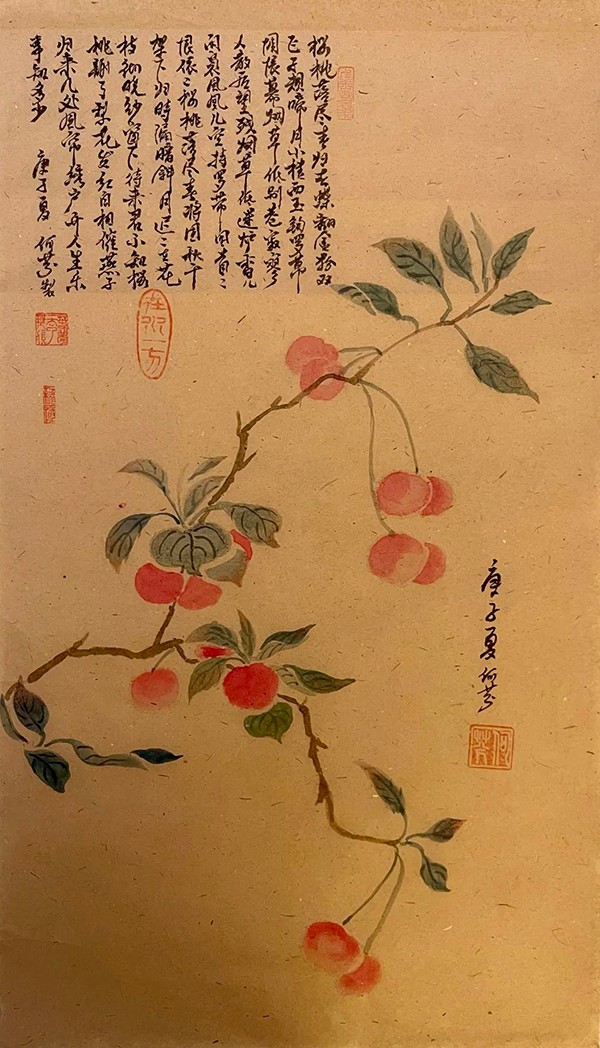 樱桃落尽春归去蝶翻金粉双
飞子规啼月小楼西玉钩罗幕
惆怅暮烟草低别巷寂寥
人散后望残烟草低迷炉香儿
闲袅凤凰儿空持罗带回首
恨依依樱桃落尽春将困秋千
架下归时漏暗斜月迟迟在花
枝彻晓纱窗下待来君不知樱
桃谢了梨花发红白相催燕子
归来几处风帘绣户开人生乐
事知多少 庚子夏 何芬製
在水一方
庚子夏何芬
何芬